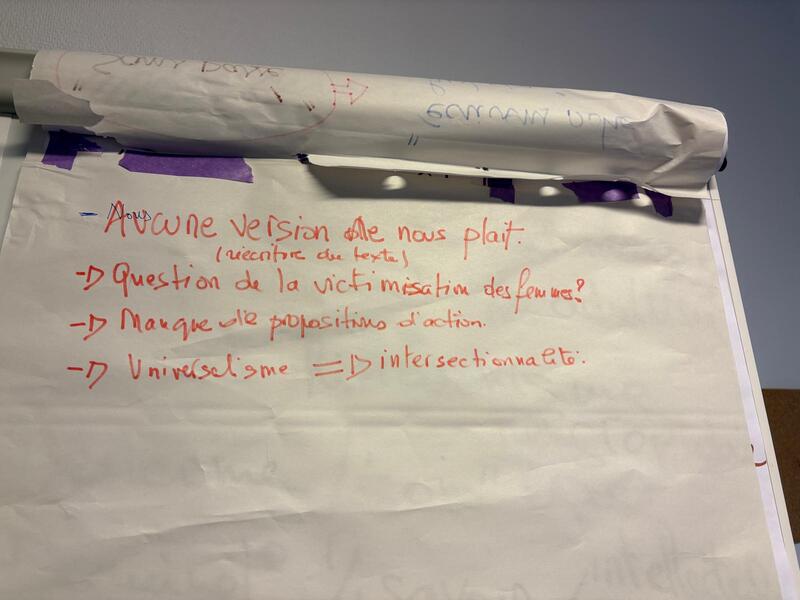 - Nous
Aucune version de nous plait.
(réecrire du texte)
-> Question de la victimisation des femmes?
-> Manque de propositions d'action.
-> Universalisme => intersectionnalité.